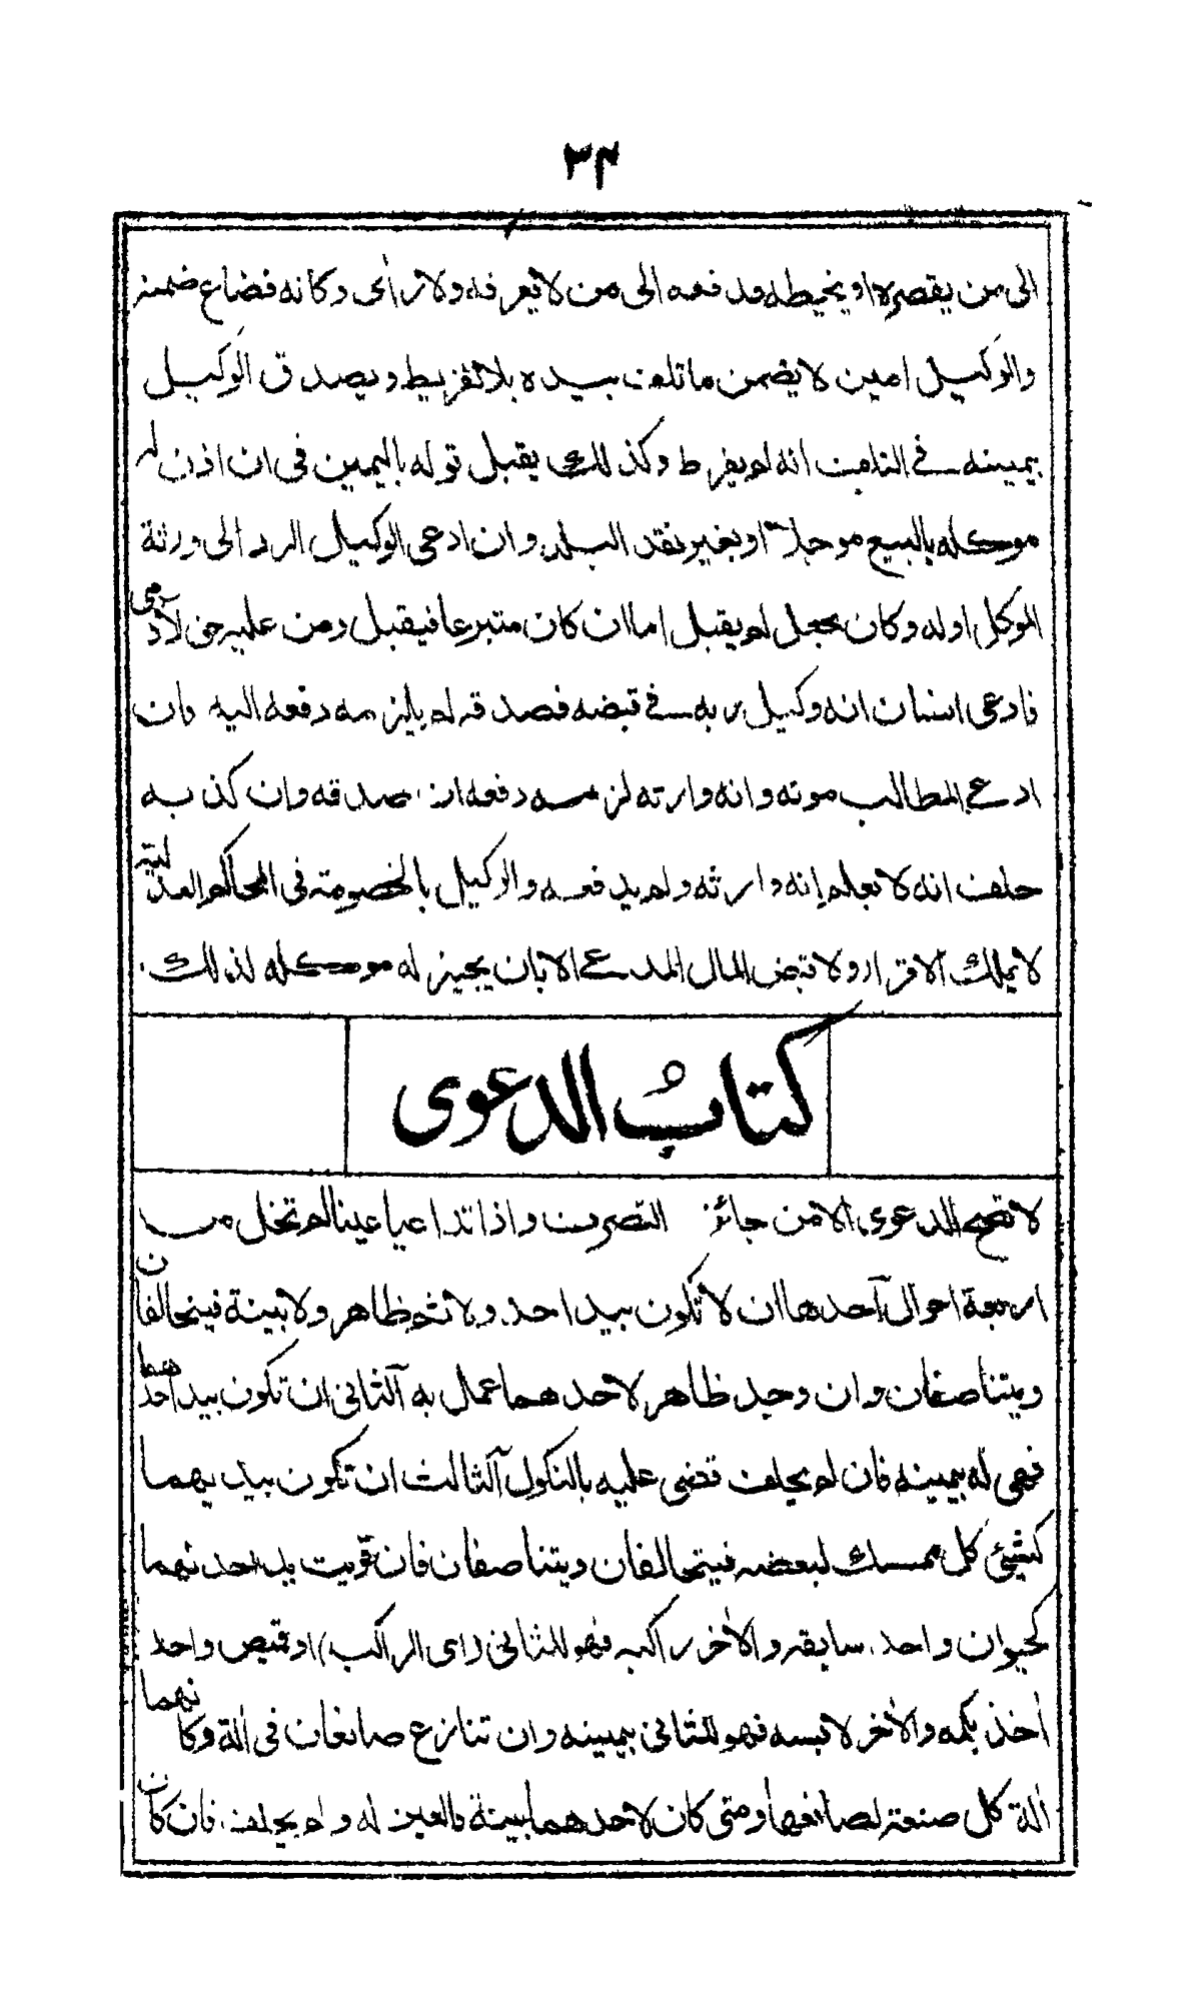 ٣٤
الى من يقصره او يخيطه فدفعه الى من لا يعرفه ولا رأى دكانه فضاع ضمنه
والوكيل امين لا يضمن ما تلف بيده بلا تفريط ويصدق الوكيل
بيمينه في التلف انه لم يفرط وكذلك يقبل قوله باليمين في ان اذن له
موكله بالبيع موجلا او بغير نقد البلد وان ادعى الوكيل الرد الى ورثة
الموكل او له وكان بجعل لم يقبل اما ان كان متبرعا فيقبل ومن عليه حق لآدمى
فادعى انسان انه وكيل ربه في قبضه فصدقه لم يلزمه دفعه اليه وان
ادعى المطالب موته وانه وارثه لزمه دفعه ان صدقه وان كذبه
حلف انه لا يعلم انه وارثه ولم يدفعه والوكيل بالخصومة في المحاكم العدلية
لا يملك الاقرار ولا قبض المال المدعى الا بان يجيز له موكله لذلك
كتاب الدعوى
لا تصح الدعوى الا من جائز التصرف واذا تداعيا عينا لم تخل من
اربعة احوال آحدها ان لا تكون بيد احد ولا ثم ظاهر ولا بينة فيتحالفان
ويتناصفان وان وجد ظاهر لاحدهما عمل به آلثانى ان تكون بيد احدهما
فهى له بيمينه فان لم يحلف قضى عليه بالنكول آلثالث ان تكون بيديهما
كشئ كل ممسك لبعضه فيتحالفان ويتناصفان فان قويت يد احدهما
كحيوان واحد سايقه والآخر راكبه فهو للثانى (اى الراكب) او قميص واحد
اخذ بكمه والآخر لابسه فهو للثانى بيمينه وان تنازع صانعان فى آلة دكانهما
آلة كل صنعة لصانعها ومتى كان لاحدهما بينة فالعين له ولم يحلف فان كان